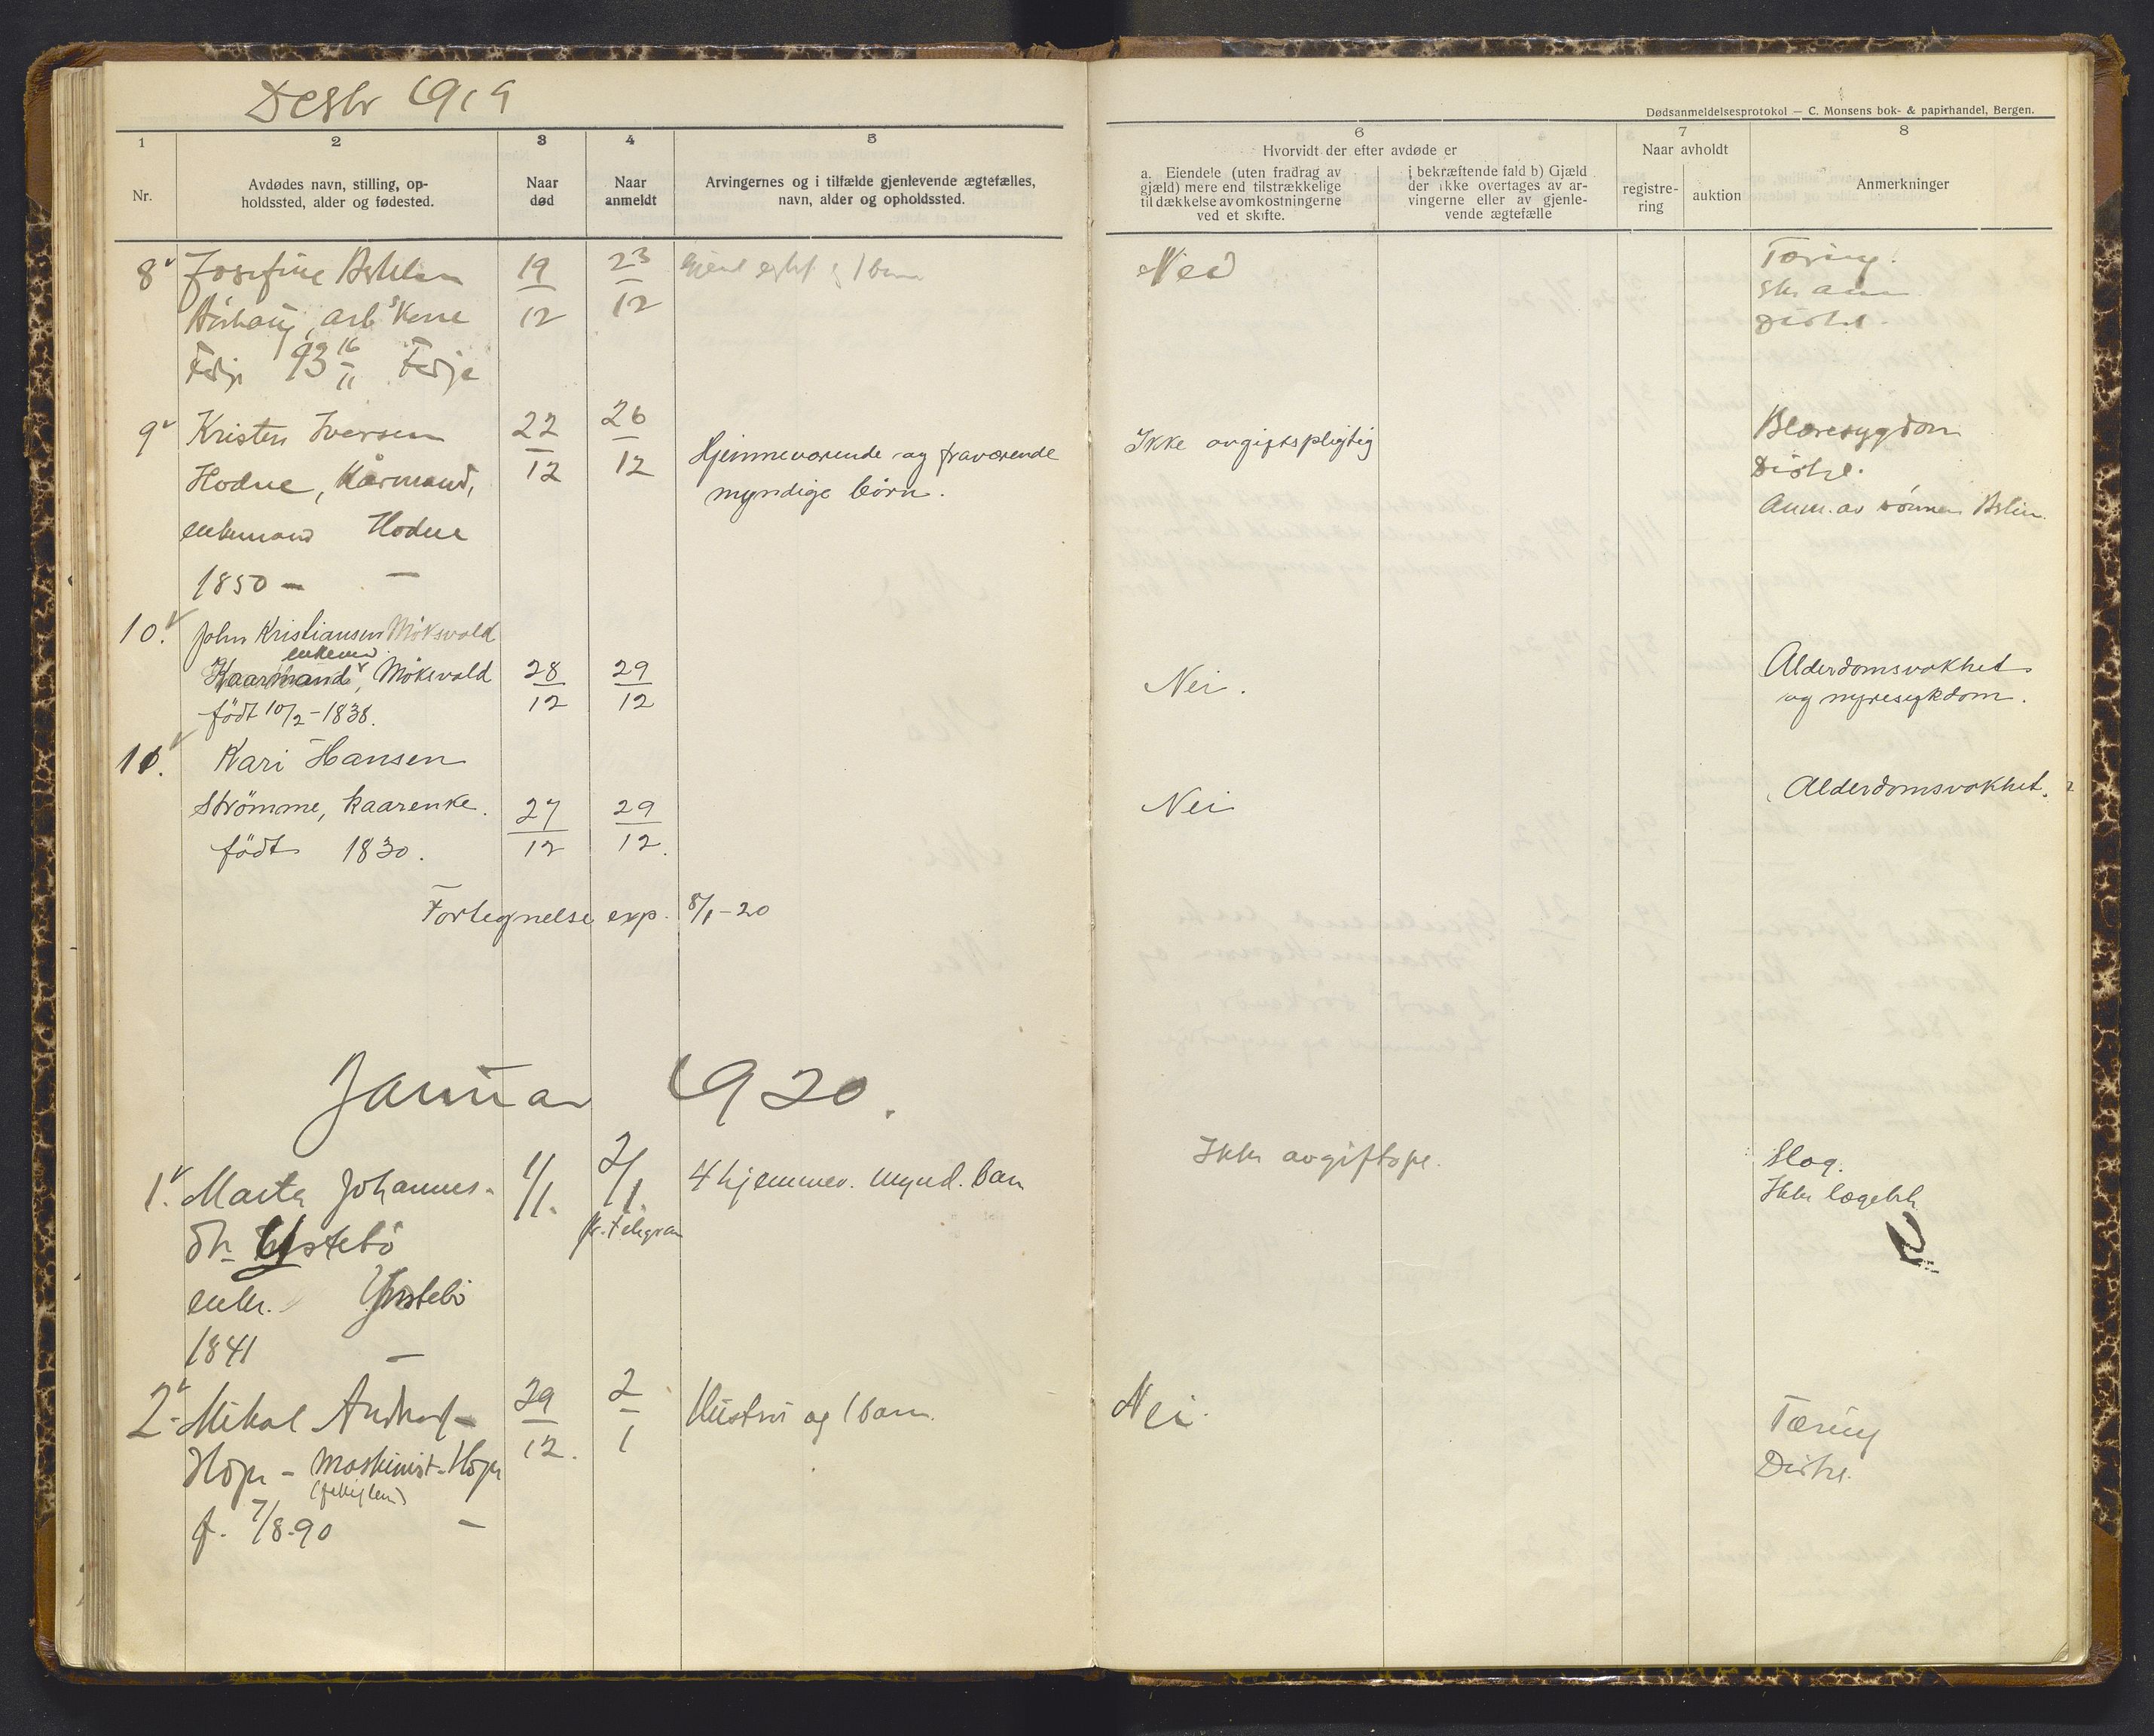 Desbr 1919
Dødsanmeldelsesprotokol — C. Monsens bok- & papirhandel, Bergen.
1 2 3 4 5 6 7 8
Nr.
Avdødes navn, stilling, op-
holdssted, alder og fødested.
Naar
død
Naar
anmeldt
Arvingernes og i tilfælde gjenlevende ægtefælles,
navn, alder og opholdssted.
Hvorvidt der efter avdøde er
a. Eiendele (uten fradrag av
gjæld) mere end tilstrækkelige
til dækkelse av omkostningerne
ved et skifte.
i bekræftende fald b) Gjæld
der ikke overtages av ar-
vingerne eller av gjenle-
vende ægtefælle
Naar avholdt
registre-
ring
auktion
Anmerkninger
8 Josefine
arb Kone
93 16/11
19/12
23/12
1 barn
Nei
Tæring.
Distrl.
9 Kristen Iversen
Hodne, Kårmand,
enkemand Hodne
1850 — —
22/12
26/12
Hjemmeværende og fraværende
myndige börn.
Ikke avgiftspligtig
Blæresygdom
Distrl.
Anm. av sönnen
10. John Kristiansen Möksvold
enkem.
Kaarmand, Möksvold
födt 10/2-1838.
28/12
29/12
Nei.
Alderdomsvakhet
og nyresykdom.
11. Kari Hansen
Strömme, kaarenke.
födt 1830.
27/12
29/12.
Nei
Alderdomsvakhet.
Fortegnelse exp. 8/1-20
Januar 1920.
1. Marta Johannes-
dtr. Ystebö
enke. Ystebö
1841 —
1/1.
2/1.
pr. telegram
4 hjemmev. mynd. barn
Ikke avgiftspl.
Slag.
Ikke lægebh.
2. Mikal
Hope - Maskinist - Hope
f. 7/8-90 —
29/12.
2/1
Hustru og 1 barn.
Nei.
Tæring
Distrl.